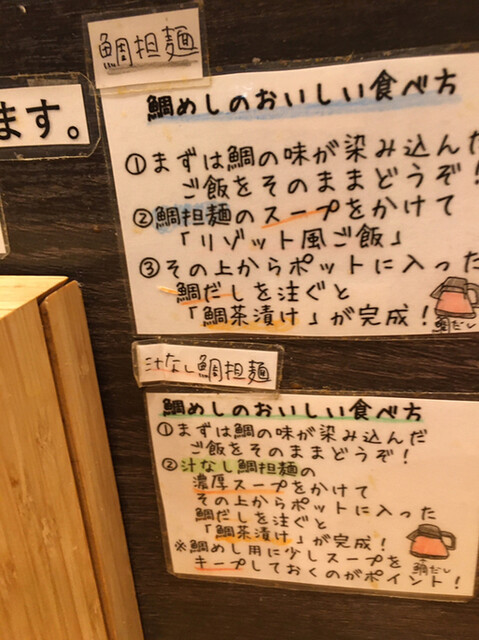 鯛担麺
ます。
鯛めしのおいしい食べ方
①まずは鯛の味が染み込んだ
ご飯をそのままどうぞ!
②鯛担麺のスープをかけて
「リゾット風ご飯」
③その上からポットに入った
鯛だしを注ぐと
「鯛茶漬け」が完成!
鯛だし
汁なし鯛担麺
鯛めしのおいしい食べ方
①まずは鯛の味が染み込んだ
ご飯をそのままどうぞ!
②汁なし鯛担麺の
濃厚スープをかけて
その上からポットに入った
鯛だしを注ぐと
「鯛茶漬け」が完成!
鯛だし
※鯛めし用に少しスープを
キープしておくのがポイント!